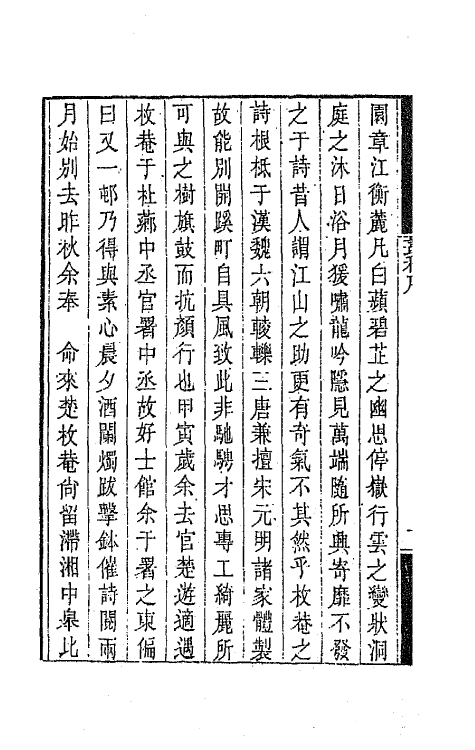 園章江衡麓凡白蘋碧芷之幽思停嶽行雲之變狀洞
庭之沐日浴月猨嘯龍吟隱見萬端隨所興寄靡不發
之于詩昔人謂江山之助更有奇氣不其然乎枚菴之
詩根柢于漢魏六朝輘轢三唐兼擅宋元明諸家體製
故能別開蹊町自具風致此非馳騁才思專工綺麗所
可與之樹旗鼓而抗顏行也甲寅歲余去官楚遊適遇
枚菴于杜薌中丞官署中丞故好士館余于署之東偏
曰又一邨乃得與素心晨夕酒闌燭跋擊鉢催詩閱兩
月始別去昨秋余奉　命來楚枚菴尙留滯湘中皋比